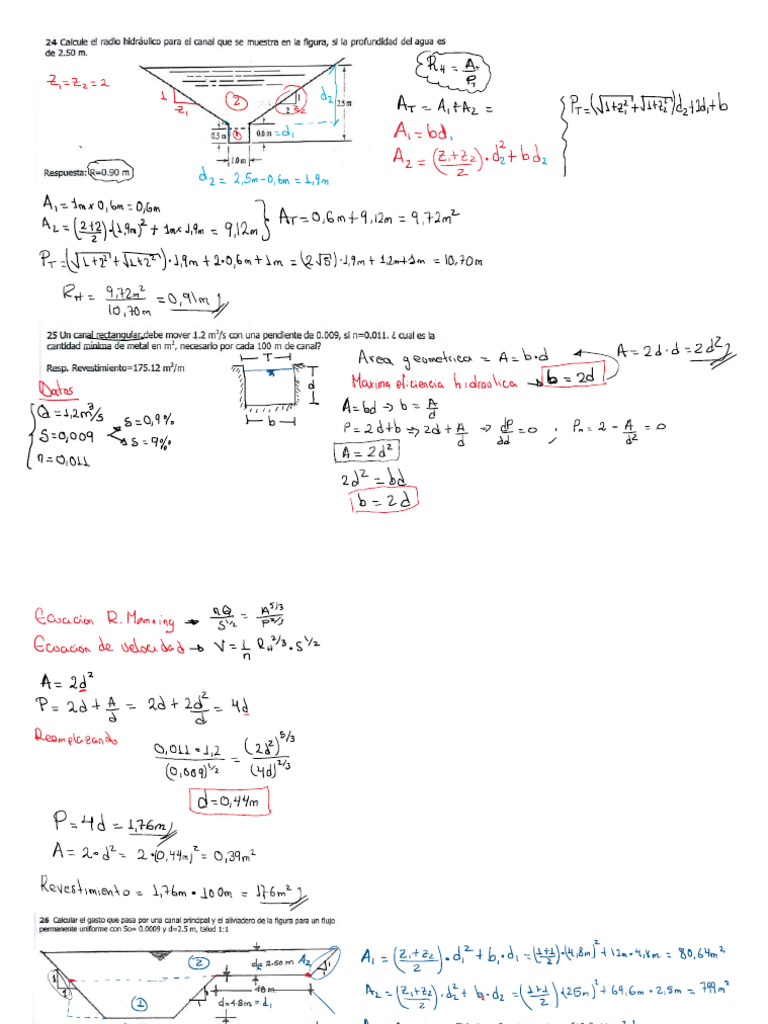 24 Calcule el radio hidráulico para el canal que se muestra en la figura, si la profundidad del agua es
de 2.50 m.
Z₁=Z₂=2
1
Z₁
2
1
2
Z₂
d₂
2.5m
0.5m
1
0.6m =d₁
1.0m
Respuesta: R=0.90 m
d₂ = 2,5m-0,6m=1,9m
R_H = A_T/P_T
A_T = A₁+A₂ =
A₁ = bd₁
A₂ = ((Z₁+Z₂)/2)·d₂²+bd₂
P_T=(√(1+Z₁²)+√(1+Z₂²))d₂+2d₁+b
A₁=1m×0,6m=0,6m
A₂=((2+2)/2)·(1,9m)²+1m×1,9m=9,12m
A_T=0,6m+9,12m=9,72m²
P_T=(√(1+2²)+√(1+2²))·1,9m+2·0,6m+1m=(2√5)·1,9m+1,2m+1m=10,70m
R_H = 9,72m²/10,70m =0,91m
25 Un canal rectangular debe mover 1.2 m³/s con una pendiente de 0.009, si n=0.011. ¿ cual es la
cantidad mínima de metal en m², necesario por cada 100 m de canal?
Resp. Revestimiento=175.12 m²/m
T
d
b
Area geometrica = A=b·d
A=2d·d=2d²
Maxima eficiencia hidraulica → b=2d
Datos
Q=1,2m³/s
S=0,009
S=0,9%
S=9%
n=0,011
A=bd → b=A/d
P=2d+b → 2d+A/d → dP/dd=0 ; Pn=2-A/d²=0
A=2d²
2d²=bd
b=2d
Ecuacion R. Manning → nQ/S^1/2 = A^5/3/P^2/3
Ecuacion de velocidad → V=1/n R_H^2/3·S^1/2
A=2d²
P=2d+A/d=2d+2d²/d=4d
Reemplazando
0,011·1,2/(0,009)^1/2=(2d²)^5/3/(4d)^2/3
d=0,44m
P=4d=1,76m
A=2·d²=2·(0,44m)²=0,39m²
Revestimiento=1,76m·100m=176m²
26 Calcular el gasto que pasa por una canal principal y el aliviadero de la figura para un flujo
permanente uniforme con So= 0.0009 y d=2.5 m, talud 1:1
1
1
1
2
d₂= 2.50 m
A₂
d=4.8m=d₁
A₁=((Z₁+Z₂)/2)·d₁²+b₁·d₁=((1+1)/2)·(4,8m)²+12m·4,8m=80,64m²
A₂=((Z₁+Z₂)/2)·d₂²+b₂·d₂=((1+1)/2)·(2,5m)²+69,6m·2,5m=